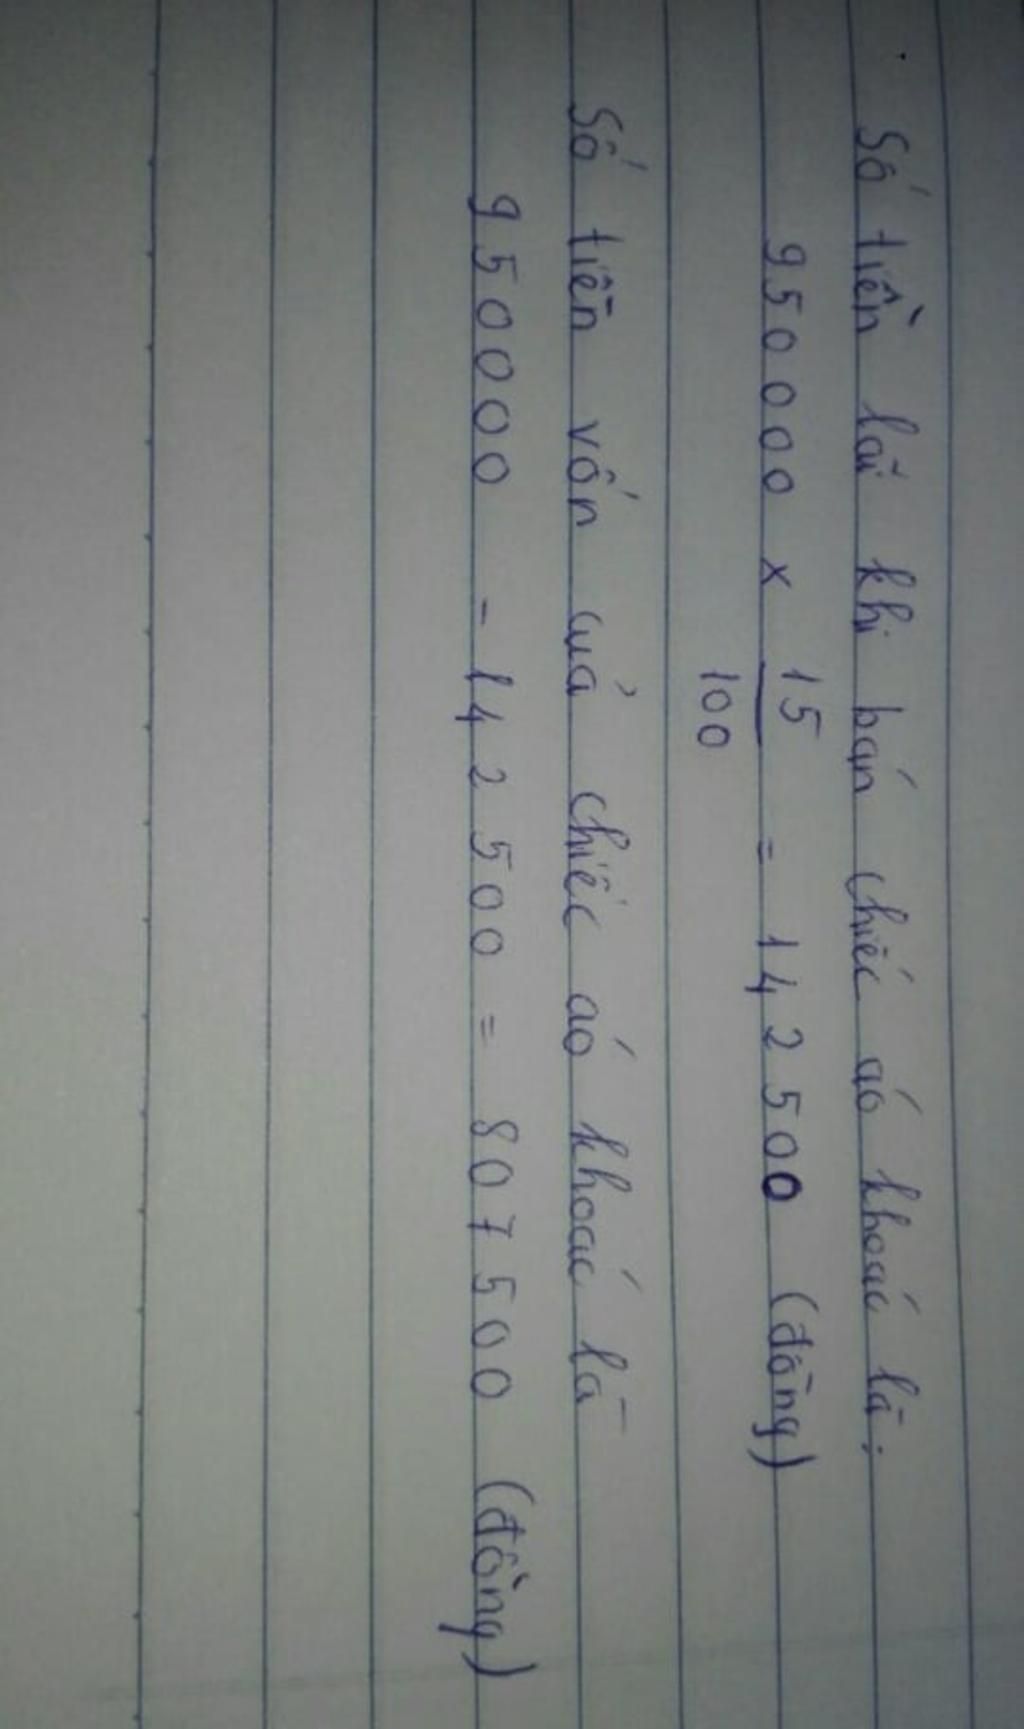 Số tiền lãi khi bán chiếc áo khoác là:
950000 x 15/100 = 142500 (đồng)
Số tiền vốn của chiếc áo khoác là
950000 - 142500 = 807500 (đồng)